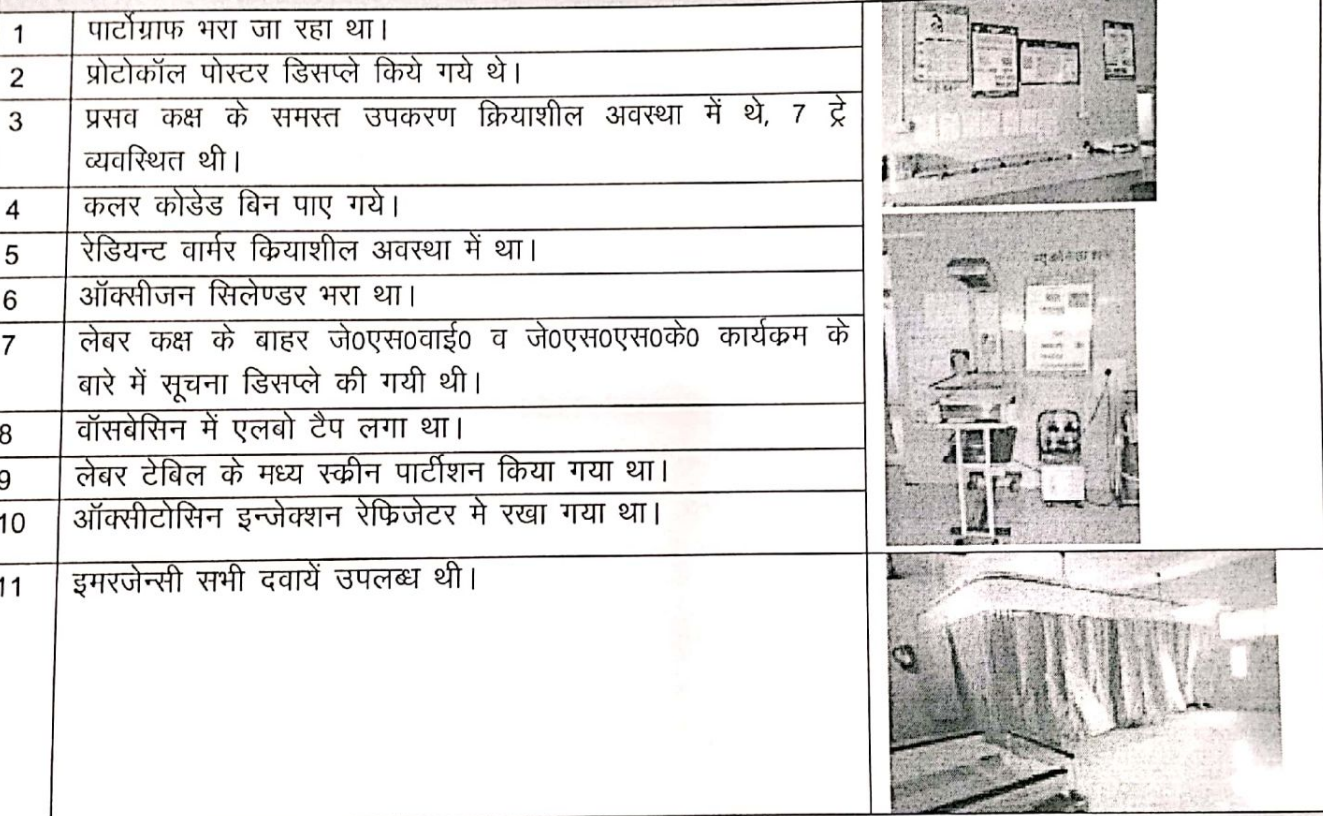 1 पार्टोग्राफ भरा जा रहा था।
2 प्रोटोकॉल पोस्टर डिसप्ले किये गये थे।
3 प्रसव कक्ष के समस्त उपकरण क्रियाशील अवस्था में थे, 7 ट्रे
व्यवस्थित थी।
4 कलर कोडेड बिन पाए गये।
5 रेडियन्ट वार्मर कियाशील अवस्था में था।
6 ऑक्सीजन सिलेण्डर भरा था।
7 लेबर कक्ष के बाहर जे0एस0वाई0 व जे0एस0एस0के0 कार्यकम के
बारे में सूचना डिसप्ले की गयी थी।
8 वॉसबेसिन में एलबो टैप लगा था।
9 लेबर टेबिल के मध्य स्कीन पार्टीशन किया गया था।
10 ऑक्सीटोसिन इन्जेक्शन रेफिजेटर मे रखा गया था।
11 इमरजेन्सी सभी दवायें उपलब्ध थी।